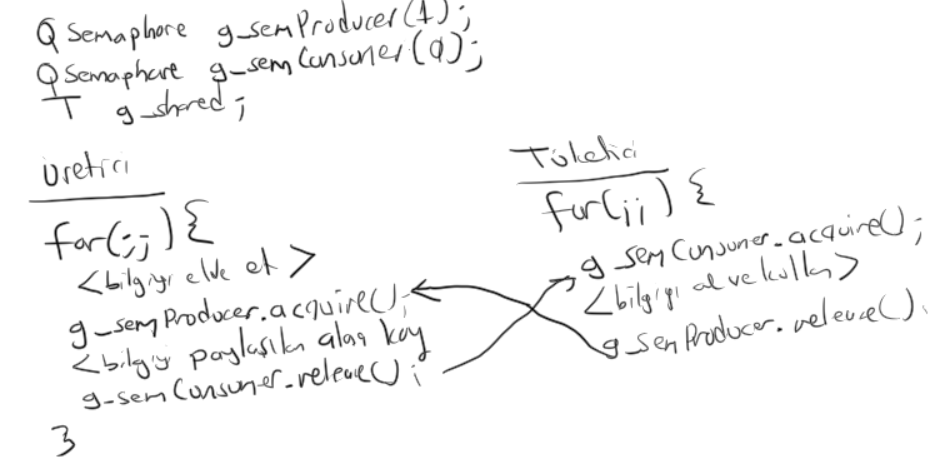 QSemaphore g_semProducer(1);
QSemaphore g_semConsumer(0);
T g_shared;
Üretici
for(;;) {
<bilgiyi elde et>
g_semProducer.acquire();
<bilgiyi paylaşılan alana koy
g_semConsumer.release();
}
Tüketici
for(;;) {
g_semConsumer.acquire();
<bilgiyi al ve kullan>
g_semProducer.release();